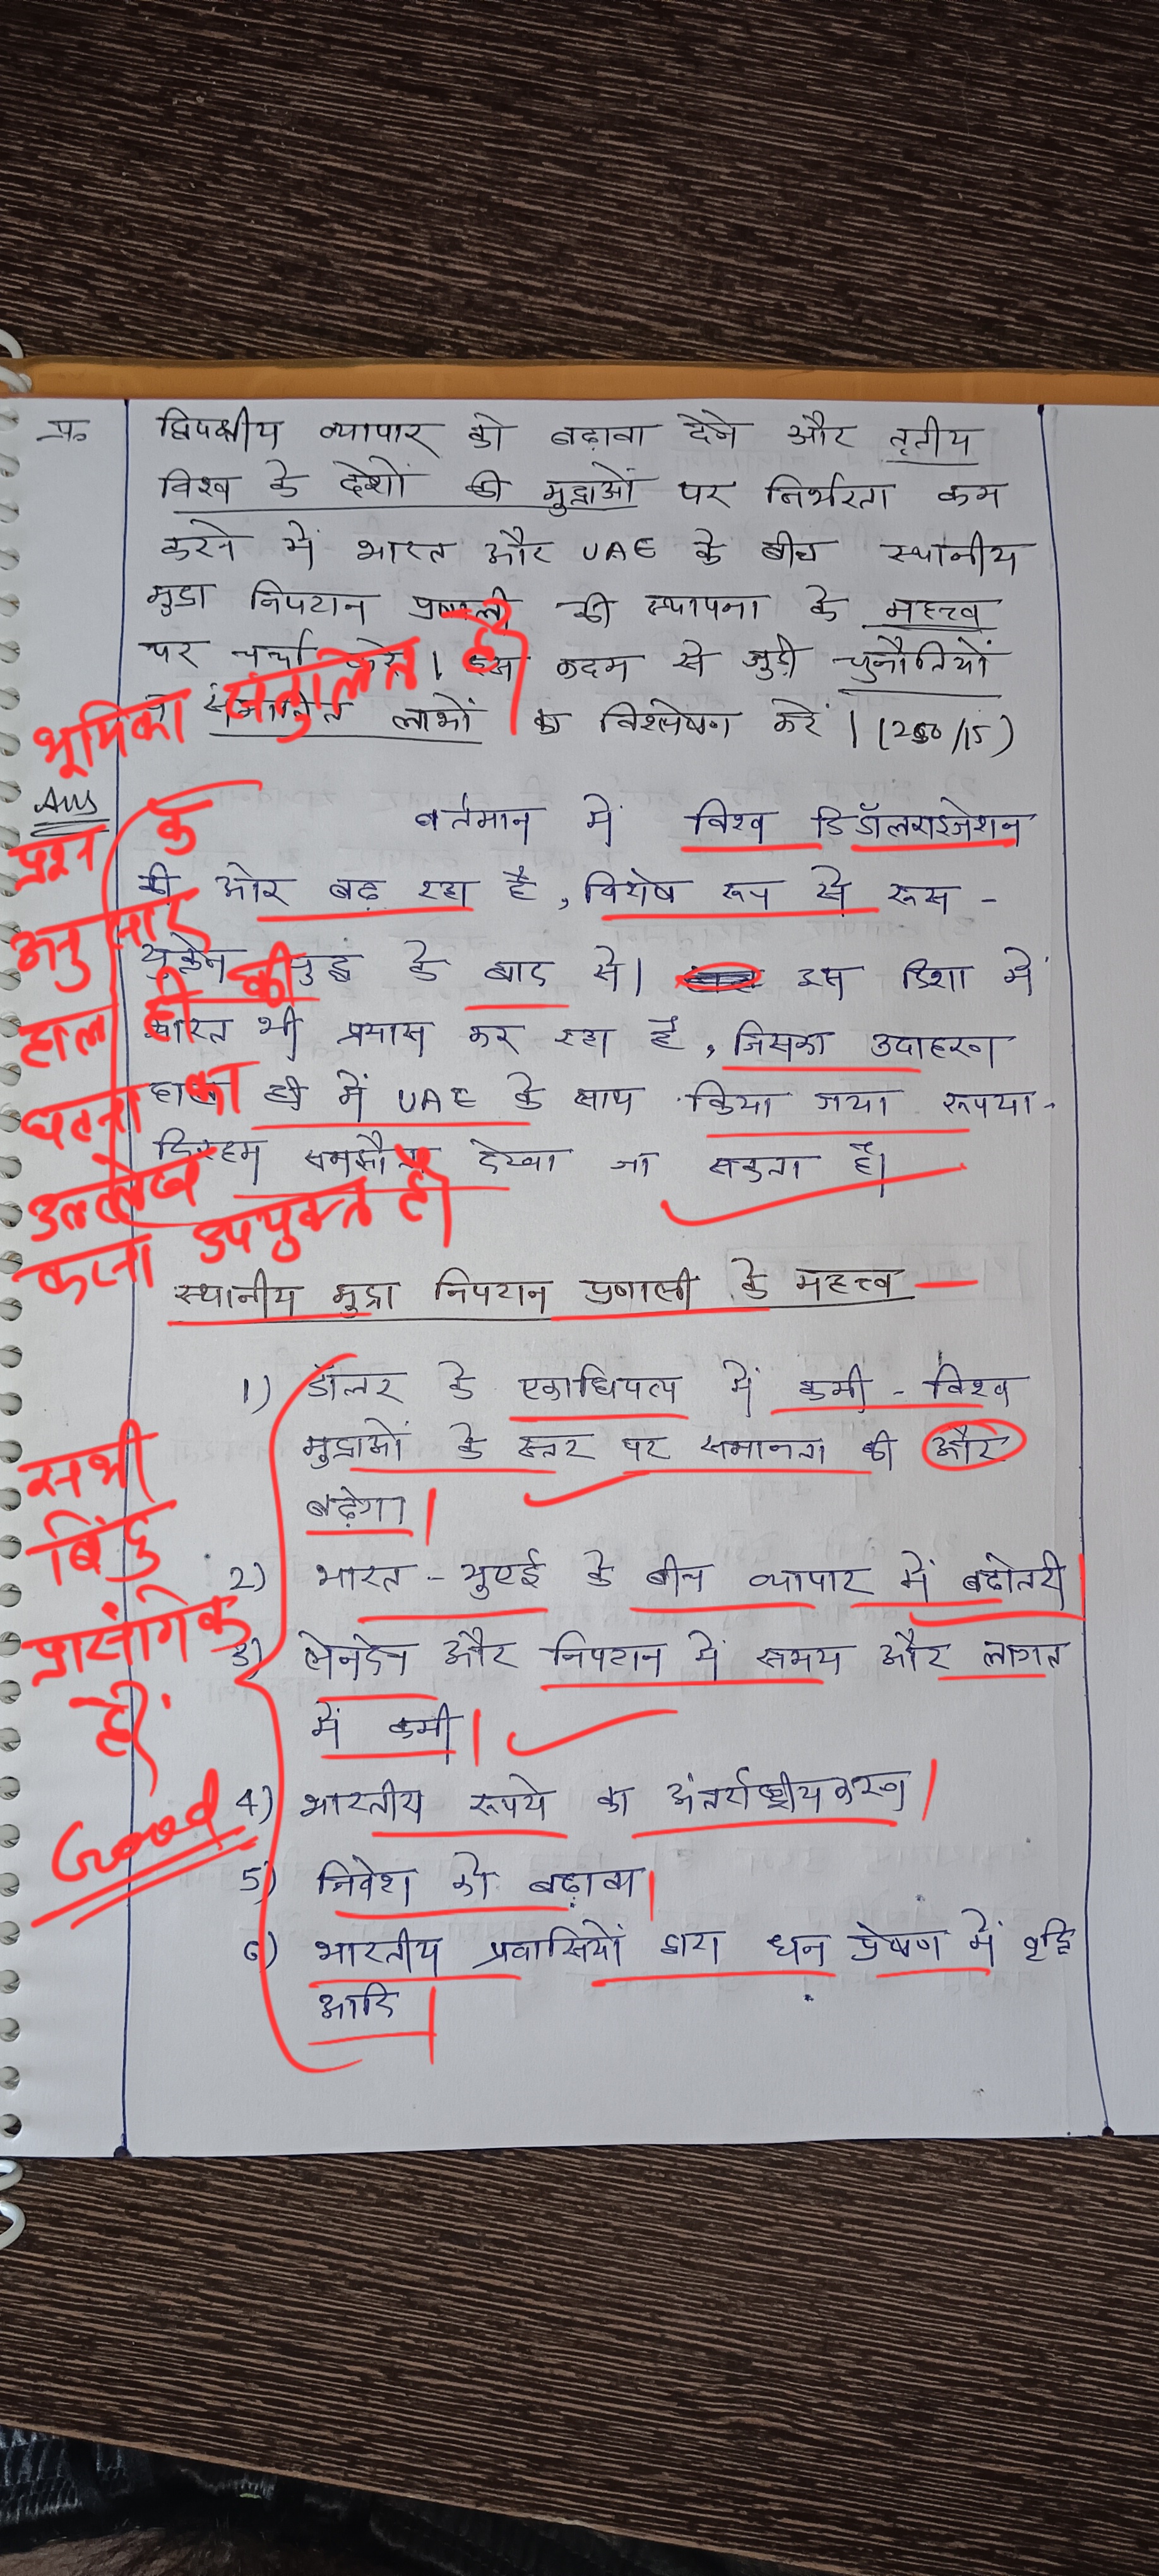 प्र.
द्विपक्षीय व्यापार को बढ़ावा देने और तृतीय
विश्व के देशों की मुद्राओं पर निर्भरता कम
करने में भारत और UAE के बीच स्थानीय
मुद्रा निपटान प्रणाली की स्थापना के महत्त्व
पर चर्चा करें। इस कदम से जुड़ी चुनौतियों
व संभावित लाभों का विश्लेषण करें। (250/15)
भूमिका संतुलित है।
Ans
वर्तमान में विश्व डिडॉलराइजेशन
की ओर बढ़ रहा है, विशेष रूप से रूस -
युक्रेन युद्ध के बाद से। इस दिशा में
भारत भी प्रयास कर रहा है, जिसका उदाहरण
हाल ही में UAE के साथ किया गया रूपया-
दिरहम समझौता देखा जा सकता है।
प्रश्न के
अनुसार
हाल ही की
घटना का
उल्लेख
करना उपयुक्त है।
स्थानीय मुद्रा निपटान प्रणाली के महत्त्व
1) डॉलर के एकाधिपत्य में कमी - विश्व
मुद्राओं के स्तर पर समानता की और
बढ़ेगा।
2) भारत - युएई के बीच व्यापार में बढोतरी
3) लेनदेन और निपटान में समय और लागत
में कमी।
4) भारतीय रूपये का अंतर्राष्ट्रीयकरण
5) निवेश को बढ़ावा
6) भारतीय प्रवासियों द्वारा धन प्रेषण में वृद्धि
आदि।
सभी
बिंदु
प्रासंगिक
हैं।
Good